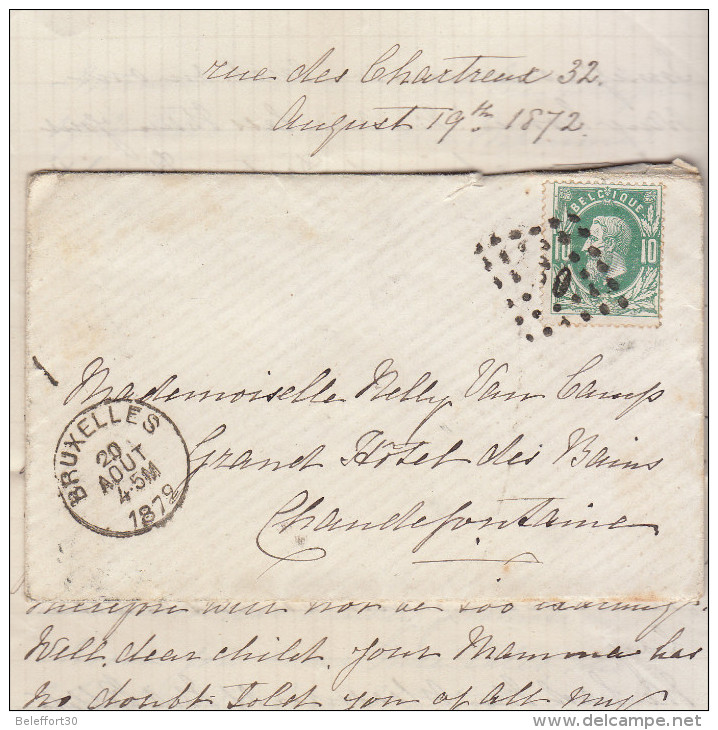 rue des Chartreux 32.
August 19th 1872.
BELGIQUE
10 10
Mademoiselle Nelly Van Camp
Grand Hôtel des Bains
Chaudefontaine
BRUXELLES
20
AOUT
4-5M
1872
therefore will not be too
Well, dear child, your Mamma has
no doubt told you of all my
Beleffort30
www.delcampe.net